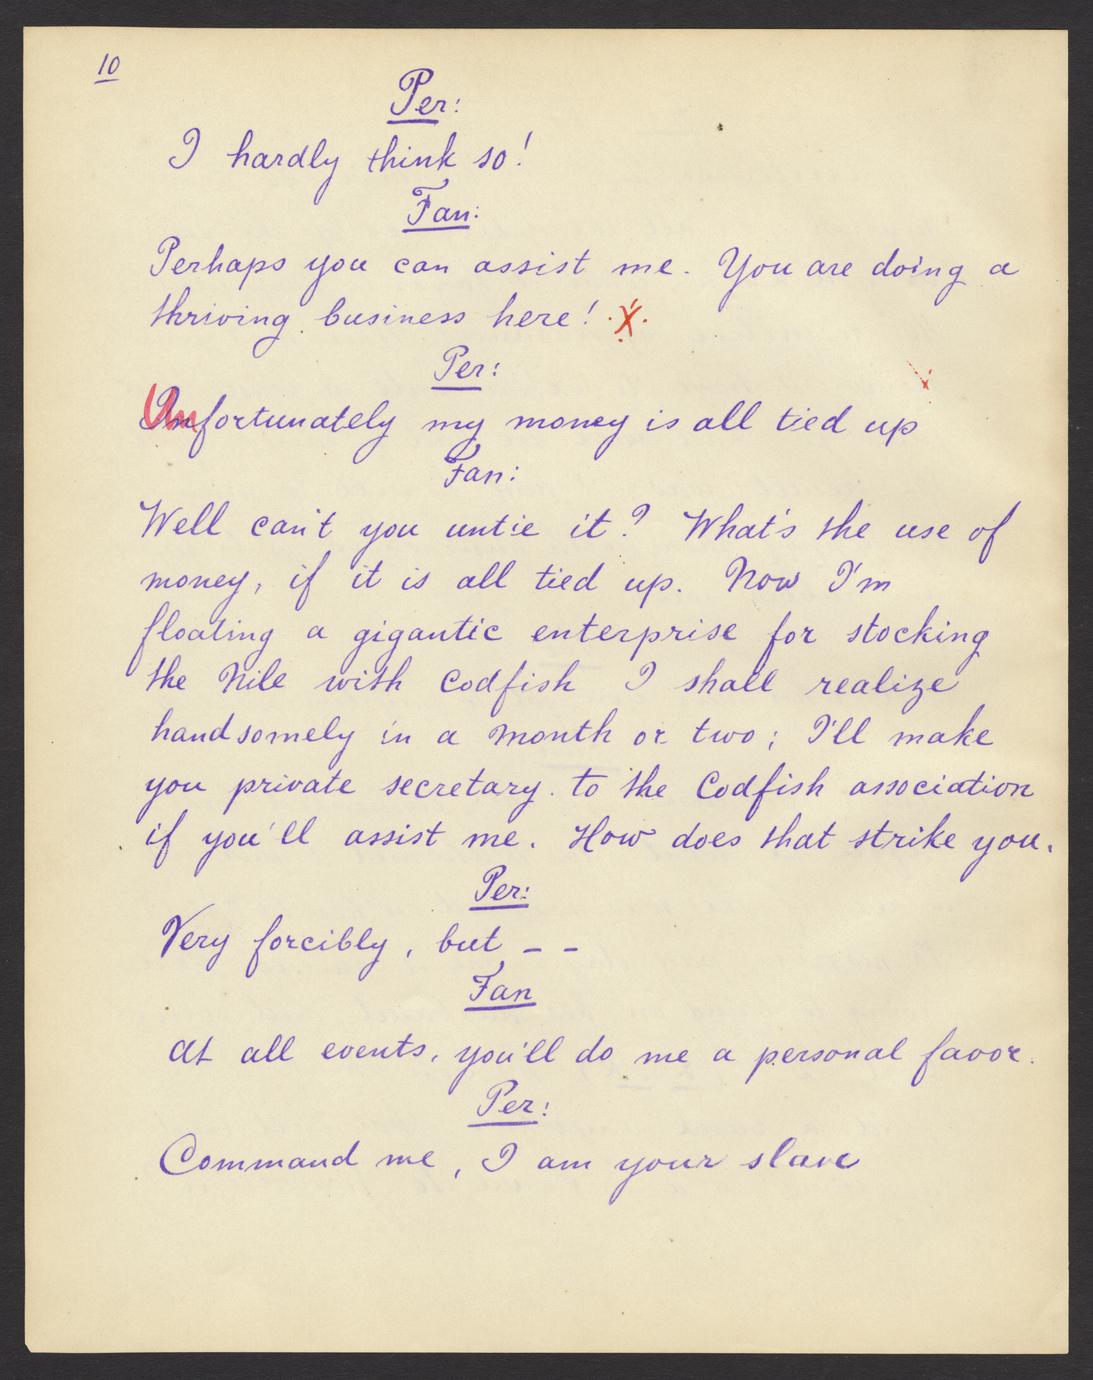 10
Per:
I hardly think so!
Fan:
Perhaps you can assist me. You are doing a
thriving business here! X
Per:
Unfortunately my money is all tied up
Fan:
Well can't you untie it? What's the use of
money, if it is all tied up. Now I'm
floating a gigantic enterprise for stocking
the Nile with Codfish I shall realize
handsomely in a month or two; I'll make
you private secretary. to the Codfish association
if you'll assist me. How does that strike you.
Per:
Very forcibly, but – –
Fan
At all events, you'll do me a personal favor.
Per:
Command me, I am your slave